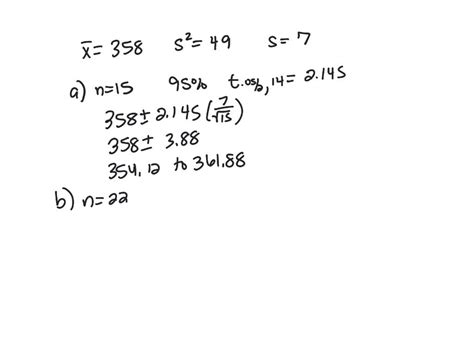 x̄ = 358 s² = 49 s = 7
a) n=15 95% t.05/2, 14 = 2.145
358 ± 2.145 (7/√15)
358 ± 3.88
354.12 to 361.88
b) n=22